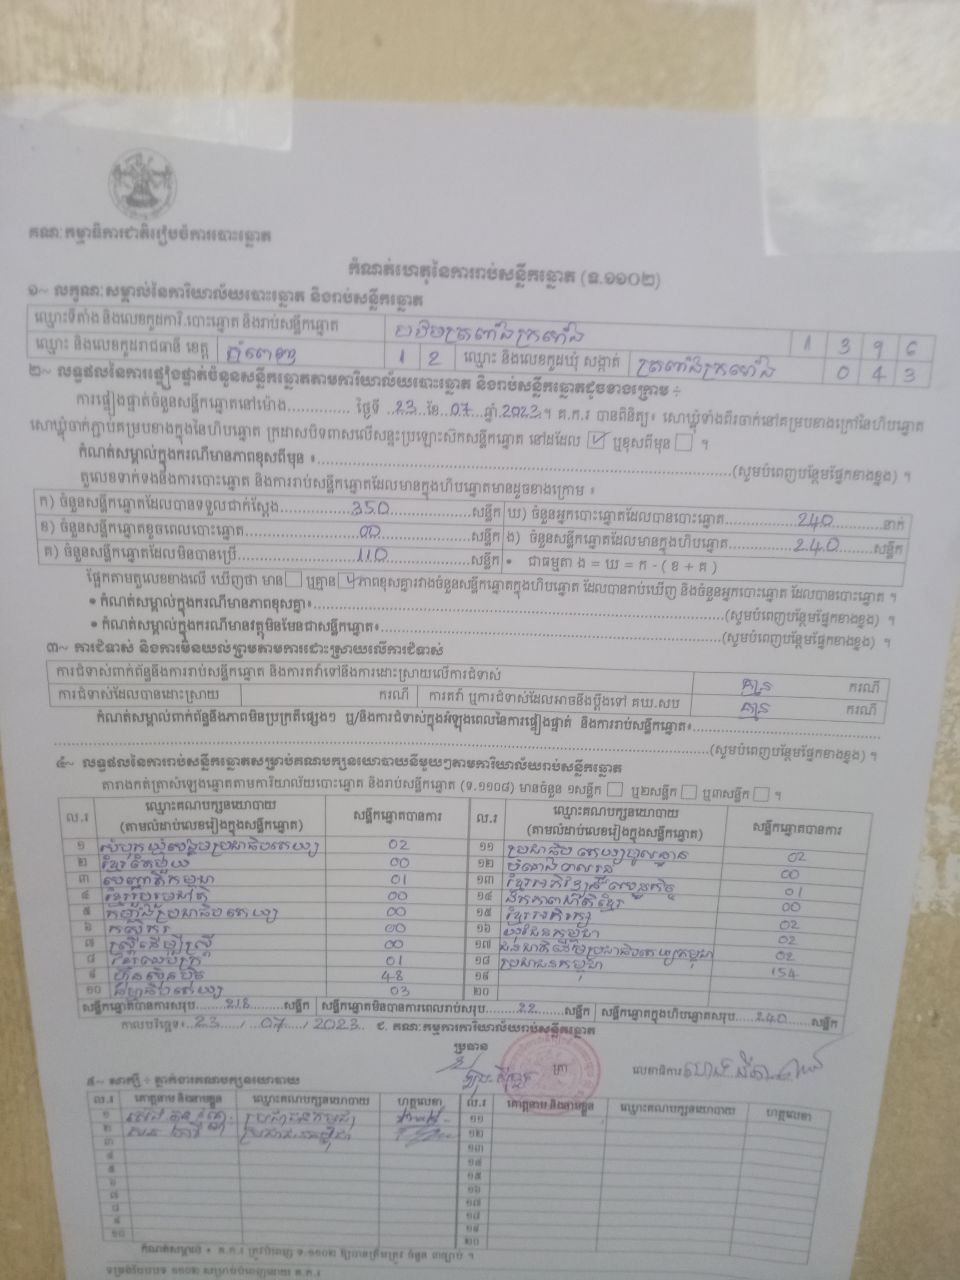 គណៈកម្មាធិការជាតិរៀបចំការបោះឆ្នោត
កំណត់ហេតុនៃការរាប់សន្លឹកឆ្នោត (ទ.១១០២)
១~ លក្ខណៈសម្គាល់នៃការិយាល័យបោះឆ្នោត និងរាប់សន្លឹកឆ្នោត
ឈ្មោះទីតាំង និងលេខកូដការិ.បោះឆ្នោត និងរាប់សន្លឹកឆ្នោត 1 3 9 6
ឈ្មោះ និងលេខកូដរាជធានី ខេត្ត ភ្នំពេញ 1 2 ឈ្មោះ និងលេខកូដឃុំ សង្កាត់ 0 4 3
២~ លទ្ធផលនៃការផ្ទៀងផ្ទាត់ចំនួនសន្លឹកឆ្នោតតាមការិយាល័យបោះឆ្នោត និងរាប់សន្លឹកឆ្នោតដូចខាងក្រោម ÷
ការផ្ទៀងផ្ទាត់ចំនួនសន្លឹកឆ្នោតនៅម៉ោង.............. ថ្ងៃទី 23 ខែ 07 ឆ្នាំ 2023 ។ គ.ក.រ បានពិនិត្យ៖ សោឃ្លុំទាំងពីរចាក់នៅគម្របខាងក្រៅនៃហិបឆ្នោត
សោឃ្លុំចាក់ភ្ជាប់គម្របខាងក្នុងនៃហិបឆ្នោត ក្រដាសបិទពាសលើសន្ទះប្រឡោះស៊កសន្លឹកឆ្នោត នៅដដែល ☑ ឬខុសពីមុន ☐ ។
កំណត់សម្គាល់ក្នុងករណីមានភាពខុសពីមុន ៖..........(សូមបំពេញបន្ថែមផ្នែកខាងខ្នង) ។
តួលេខទាក់ទងនឹងការបោះឆ្នោត និងការរាប់សន្លឹកឆ្នោតដែលមានក្នុងហិបឆ្នោតមានដូចខាងក្រោម ៖
ក) ចំនួនសន្លឹកឆ្នោតដែលបានទទួលជាក់ស្តែង 350 សន្លឹក ឃ) ចំនួនអ្នកបោះឆ្នោតដែលបានបោះឆ្នោត 240 នាក់
ខ) ចំនួនសន្លឹកឆ្នោតខូចពេលបោះឆ្នោត 00 សន្លឹក ង) ចំនួនសន្លឹកឆ្នោតដែលមានក្នុងហិបឆ្នោត 240 សន្លឹក
គ) ចំនួនសន្លឹកឆ្នោតដែលមិនបានប្រើ 110 សន្លឹក • ជាធម្មតា ង = ឃ = ក - ( ខ + គ )
ផ្អែកតាមតួលេខខាងលើ ឃើញថា មាន ☐ ឬគ្មាន ☑ ភាពខុសគ្នារវាងចំនួនសន្លឹកឆ្នោតក្នុងហិបឆ្នោត ដែលបានរាប់ឃើញ និងចំនួនអ្នកបោះឆ្នោត ដែលបានបោះឆ្នោត ។
• កំណត់សម្គាល់ក្នុងករណីមានភាពខុសគ្នា៖..........(សូមបំពេញបន្ថែមផ្នែកខាងខ្នង) ។
• កំណត់សម្គាល់ក្នុងករណីមានវត្ថុមិនមែនជាសន្លឹកឆ្នោត៖..........(សូមបំពេញបន្ថែមផ្នែកខាងខ្នង) ។
៣~ ការជំទាស់ និងការមិនយល់ព្រមតាមការដោះស្រាយលើការជំទាស់
ការជំទាស់ពាក់ព័ន្ធនឹងការរាប់សន្លឹកឆ្នោត និងការតវ៉ាទៅនឹងការដោះស្រាយលើការជំទាស់ គ្មាន ករណី
ការជំទាស់ដែលបានដោះស្រាយ ករណី ការតវ៉ា ឬការជំទាស់ដែលអាចនឹងប្តឹងទៅ គឃ.សប គ្មាន ករណី
កំណត់សម្គាល់ពាក់ព័ន្ធនឹងភាពមិនប្រក្រតីផ្សេងៗ ឬ/និងការជំទាស់ក្នុងអំឡុងពេលនៃការផ្ទៀងផ្ទាត់ និងការរាប់សន្លឹកឆ្នោត៖..........
..........(សូមបំពេញបន្ថែមផ្នែកខាងខ្នង) ។
៤~ លទ្ធផលនៃការរាប់សន្លឹកឆ្នោតសម្រាប់គណបក្សនយោបាយនីមួយៗតាមការិយាល័យរាប់សន្លឹកឆ្នោត
តារាងកត់ត្រាសំឡេងឆ្នោតតាមការិយាល័យបោះឆ្នោត និងរាប់សន្លឹកឆ្នោត (ទ.១១០៨) មានចំនួន ១សន្លឹក ☐ ឬ២សន្លឹក ☐ ឬ៣សន្លឹក ☐ ។
ល.រ ឈ្មោះគណបក្សនយោបាយ (តាមលំដាប់លេខរៀងក្នុងសន្លឹកឆ្នោត) សន្លឹកឆ្នោតបានការ ល.រ ឈ្មោះគណបក្សនយោបាយ (តាមលំដាប់លេខរៀងក្នុងសន្លឹកឆ្នោត) សន្លឹកឆ្នោតបានការ
១ សំបុកឃ្មុំសង្គមប្រជាធិបតេយ្យ 02 ១១ 02
២ ខ្មែរតែមួយ 00 ១២ 00
៣ 01 ១៣ ខ្មែរអភិវឌ្ឍន៍សេដ្ឋកិច្ច 01
៤ ខ្មែររួបរួមជាតិ 00 ១៤ ឯកភាពជាតិខ្មែរ 00
៥ កម្លាំងប្រជាធិបតេយ្យ 00 ១៥ ខ្មែរអភិរក្ស 02
៦ កសិករ 00 ១៦ 02
៧ ស្ត្រីដើម្បីស្ត្រី 00 ១៧ 02
៨ 01 ១៨ ប្រជាជនកម្ពុជា 154
៩ ហ៊្វុនស៊ិនប៉ិច 48 ១៩
១០ ធម្មាធិបតេយ្យ 03 ២០
សន្លឹកឆ្នោតបានការសរុប 218 សន្លឹក សន្លឹកឆ្នោតមិនបានការពេលរាប់សរុប 22 សន្លឹក សន្លឹកឆ្នោតក្នុងហិបឆ្នោតសរុប 240 សន្លឹក
កាលបរិច្ឆេទ៖ 23 / 07 / 2023 ជ. គណៈកម្មការការិយាល័យរាប់សន្លឹកឆ្នោត
ប្រធាន
ត្រា លេខាធិការ
៥~ សាក្សី ÷ ភ្នាក់ងារគណបក្សនយោបាយ
ល.រ គោត្តនាម និងនាមខ្លួន ឈ្មោះគណបក្សនយោបាយ ហត្ថលេខា ល.រ គោត្តនាម និងនាមខ្លួន ឈ្មោះគណបក្សនយោបាយ ហត្ថលេខា
១ ប្រជាជនកម្ពុជា ១១
២ ប្រជាជនកម្ពុជា ១២
៣ ១៣
៤ ១៤
៥ ១៥
៦ ១៦
៧ ១៧
៨ ១៨
៩ ១៩
១០ ២០
កំណត់សម្គាល់ ៖ គ.ក.រ ត្រូវបំពេញ ទ.១១០២ ឱ្យបានត្រឹមត្រូវ ចំនួន ៣ច្បាប់ ។